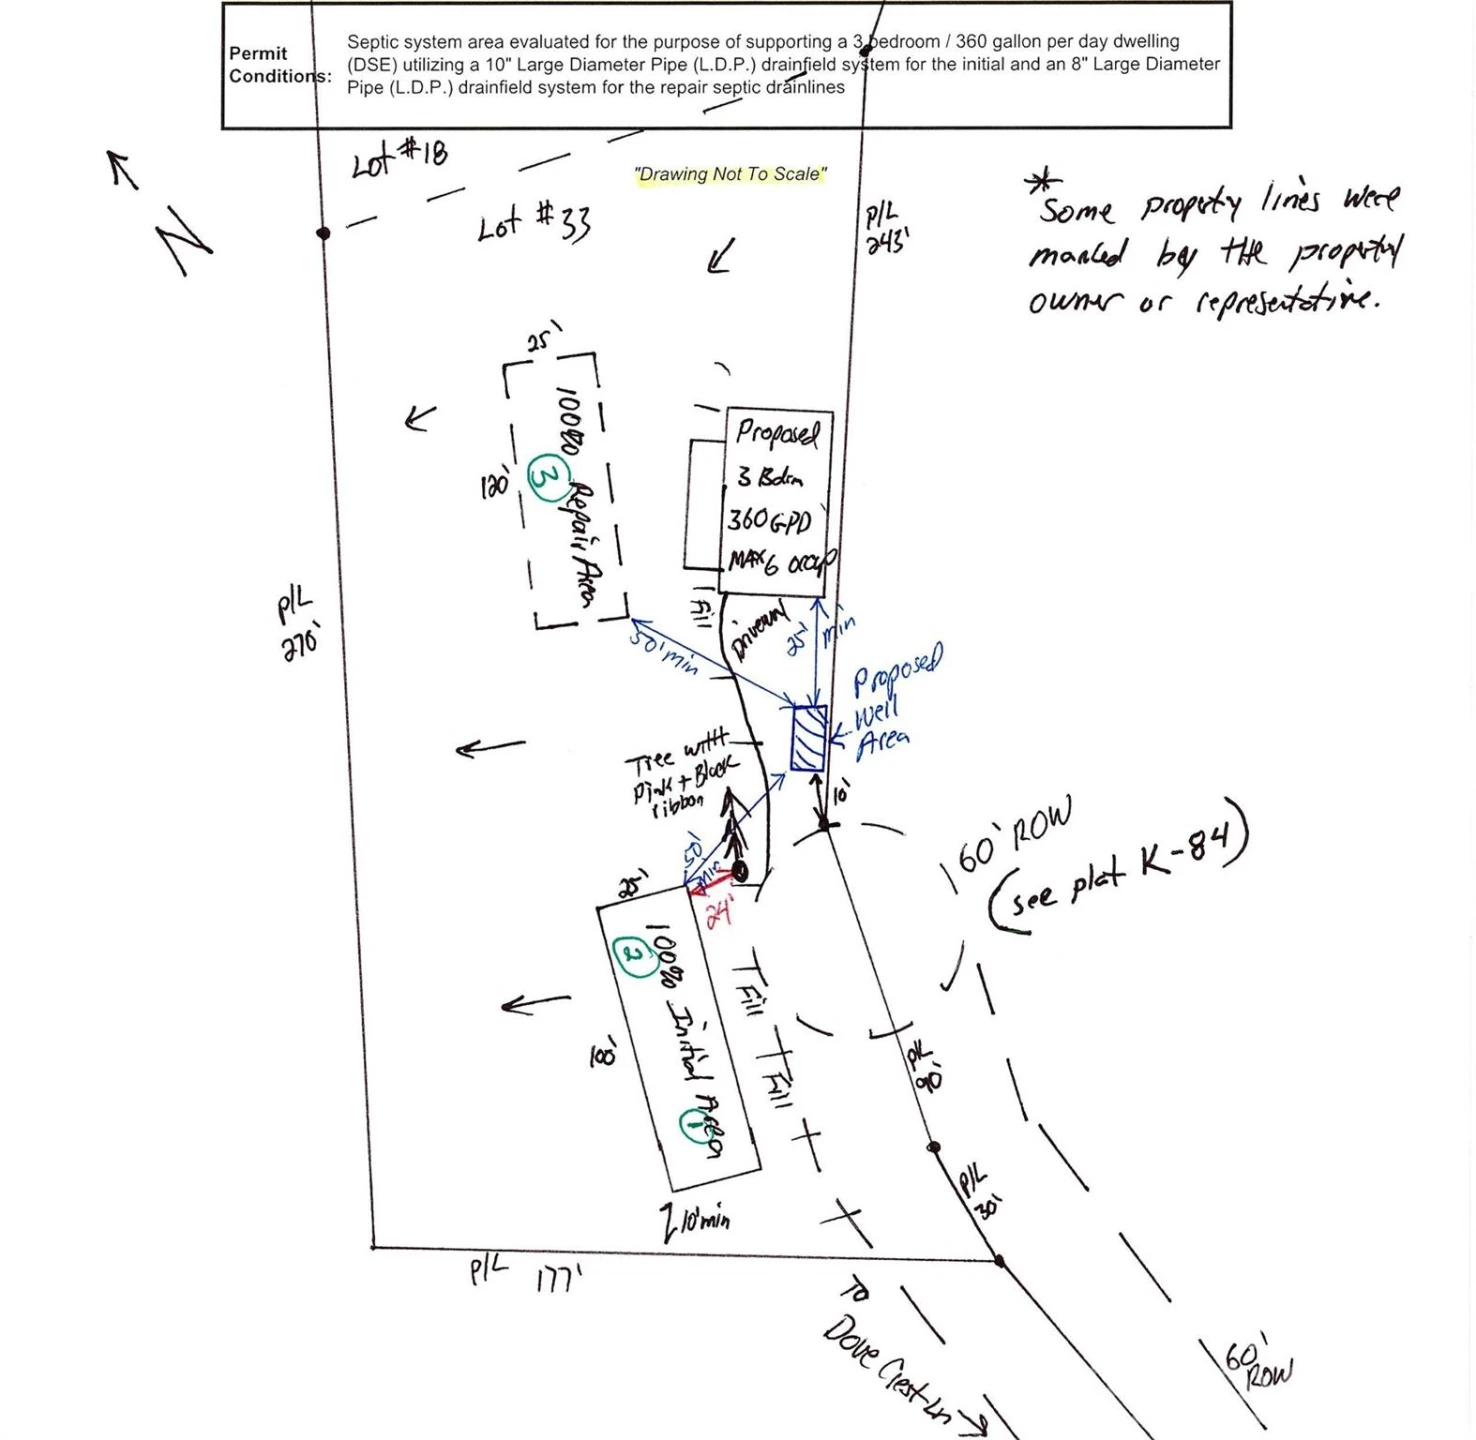 Permit
Conditions:
Septic system area evaluated for the purpose of supporting a 3 bedroom / 360 gallon per day dwelling
(DSE) utilizing a 10" Large Diameter Pipe (L.D.P.) drainfield system for the initial and an 8" Large Diameter
Pipe (L.D.P.) drainfield system for the repair septic drainlines
Lot #18
"Drawing Not To Scale"
Lot #33
N
P/L
243'
*
Some property lines were
marked by the property
owner or representative.
25'
120'
100% Repair Area
3
Proposed
3 Bdrm
360 GPD
MAX 6 occup
Fill
Driveway
25' min
50' min
P/L
270'
Proposed
Well
Area
Tree with
Pink + Black
ribbon
10'
60' ROW
(see plat K-84)
50' min
24'
25'
100'
100% Initial Area
2
1
Fill
Fill
P/L
90'
P/L
30'
10' min
P/L 177'
To
Dove Crest Ln
60'
ROW